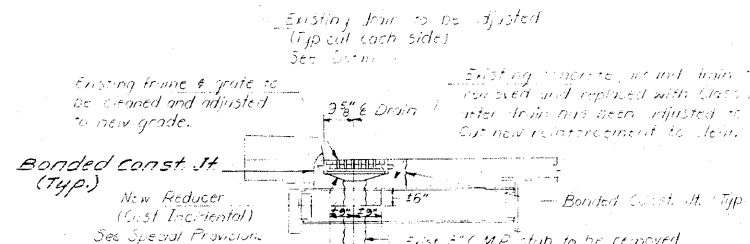 Existing drain to be adjusted
(Typical each side)
See
Existing frame & grate to
be cleaned and adjusted
to new grade.
Existing concrete around drain
removed and replaced with Class
after drain has been adjusted to
Cut new reinforcement to clear.
9 5/8" ℄ Drain
Bonded Const. Jt.
(Typ.)
New Reducer
(Cost Incidental)
See Special Provisions
±6"
±9" ±9"
Bonded Const. Jt. (Typ
Exist. C.M.P. stub to be removed